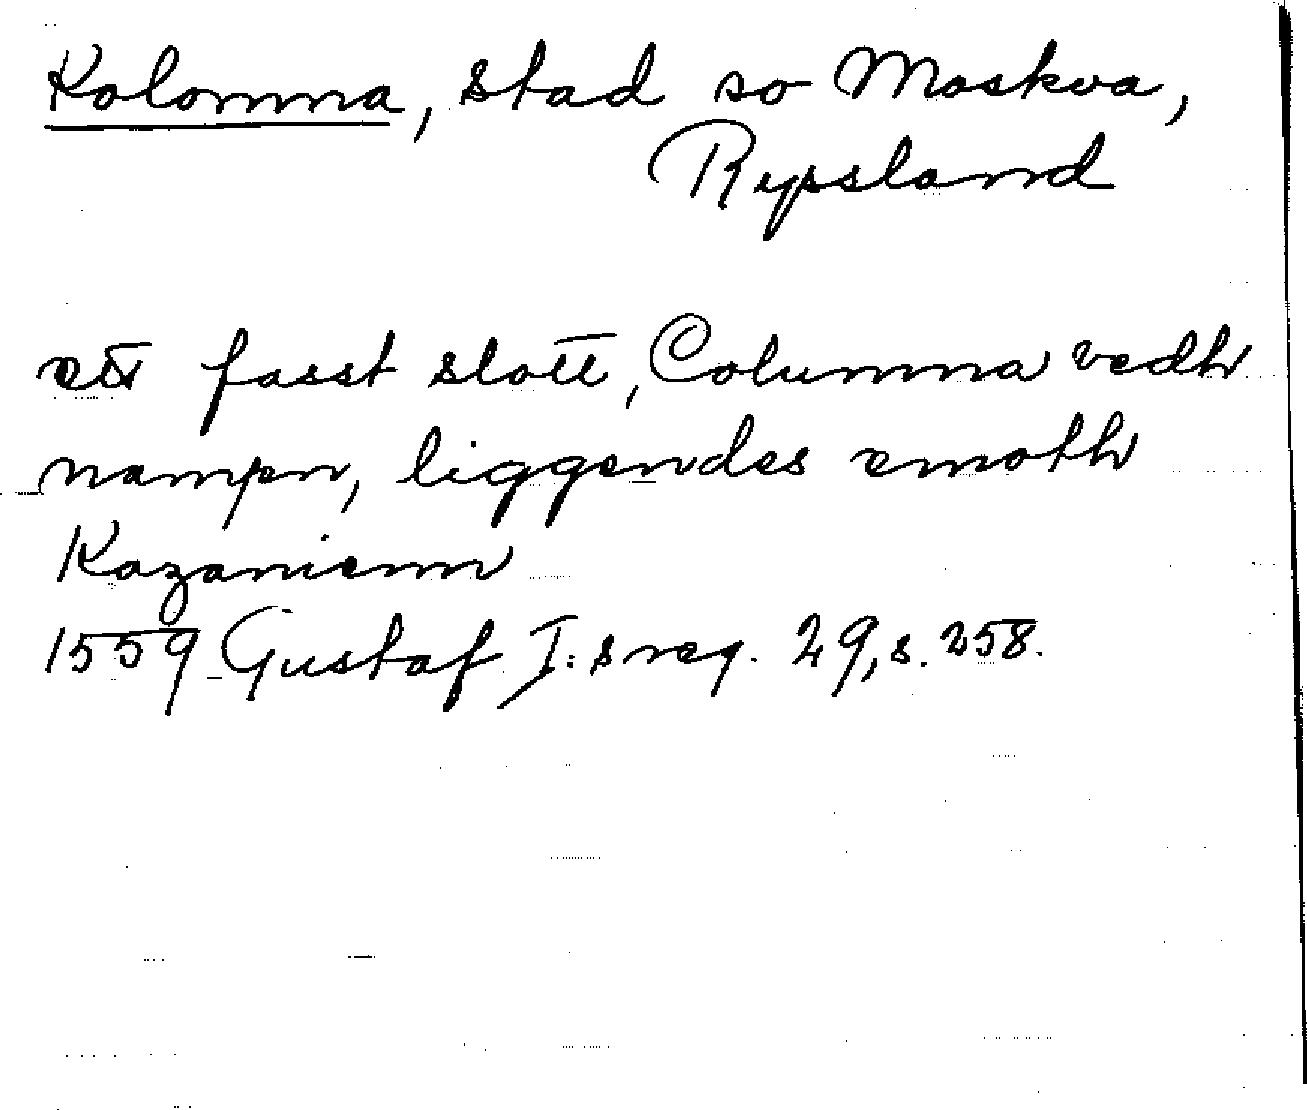 Kolomna, stad so Moskva,
Ryssland
ett fasst slott, Columna vedh
nampn, liggendes emoth
Kazanienn
1559 Gustaf I:s reg. 29, s. 258.